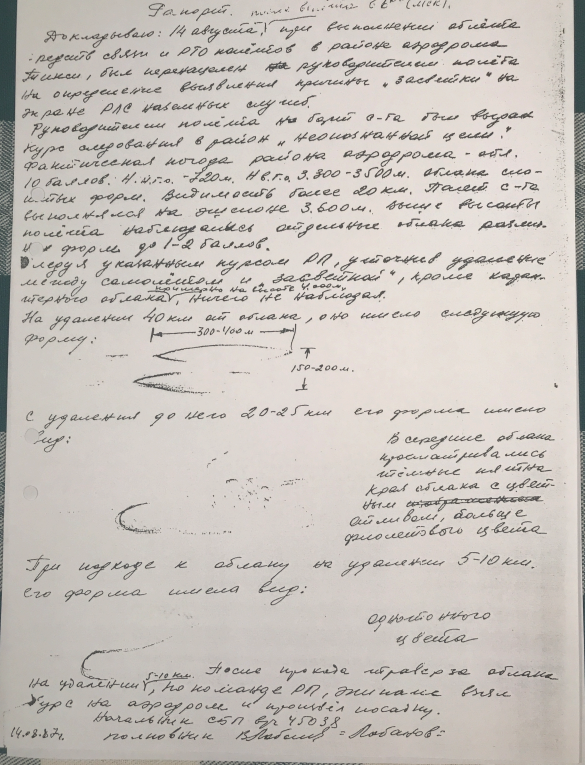 Рапорт.
Докладываю: 14 августа, при выполнении облёта
средств связи и РТО полётов в района аэродрома
Тикси, был перенацелен руководителем полёта
на определение выявления причины „засветки" на
экране РЛС наземных служб.
Руководителем полёта на борт с-та был выдан
курс следования в район „неопознанной цели".
Фактическая погода района аэродрома - отл.
10 баллов. Н.н.г.о. -720м. Н в.г.о. 3.300-3500м. облака сло-
истых форм. Видимость более 20 км. Полет с-та
выполнялся на эшелоне 3.600м. Выше высоты
полёта наблюдались отдельные облака разли-
форм до 1-2 баллов.
Следуя указанным курсом РП, уточнив удаление
между самолётом и „засветкой", кроме
облака, примерно на высоте 4.000м., ничего не наблюдал.
На удалении 40 км от облака, оно имело следующую
форму:
300-400м
150-200м.
С удаления до него 20-25 км его форма имело
вид:
В середине облака
просматривались
тёмные пятна
края облака с цвет-
ным
отливом, больше
фиолетового цвета
При подходе к облаку на удалении 5-10 км.
его форма имела вид:
однотонного
цвета
После прохода траверза облака
на удалении 5-10 км., по команде РП, экипаж взял
курс на аэродром и произвёл посадку.
Начальник в/ч 45038
14.08.87г. полковник = Лобанов =